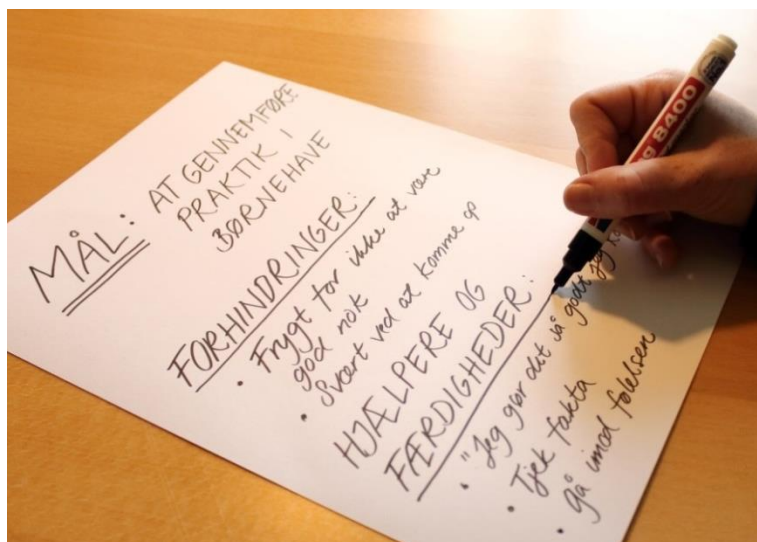 MÅL: AT GENNEMFØRE
PRAKTIK I
BØRNEHAVE
FORHINDRINGER:
• Frygt for ikke at være
god nok
• Svært ved at komme op
HJÆLPERE OG
FÆRDIGHEDER:
• "Jeg gør det så godt jeg
• Tjek fakta
• gå imod følelsen
8400